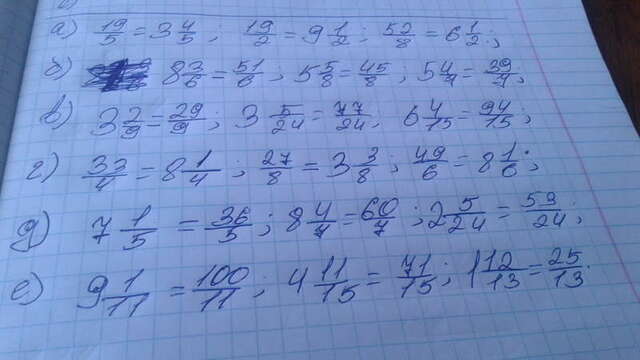 а) 19/5 = 3 4/5 ; 19/2 = 9 1/2 ; 52/8 = 6 1/2 ;
б) 8 3/6 = 51/6 ; 5 5/8 = 45/8 ; 5 4/7 = 39/7 ;
в) 3 2/9 = 29/9 ; 3 5/24 = 77/24 ; 6 4/15 = 94/15 ;
г) 33/4 = 8 1/4 ; 27/8 = 3 3/8 ; 49/6 = 8 1/6 ;
д) 7 1/5 = 36/5 ; 8 4/7 = 60/7 ; 2 5/24 = 53/24 ;
е) 9 1/11 = 100/11 ; 4 11/15 = 71/15 ; 1 12/13 = 25/13 .